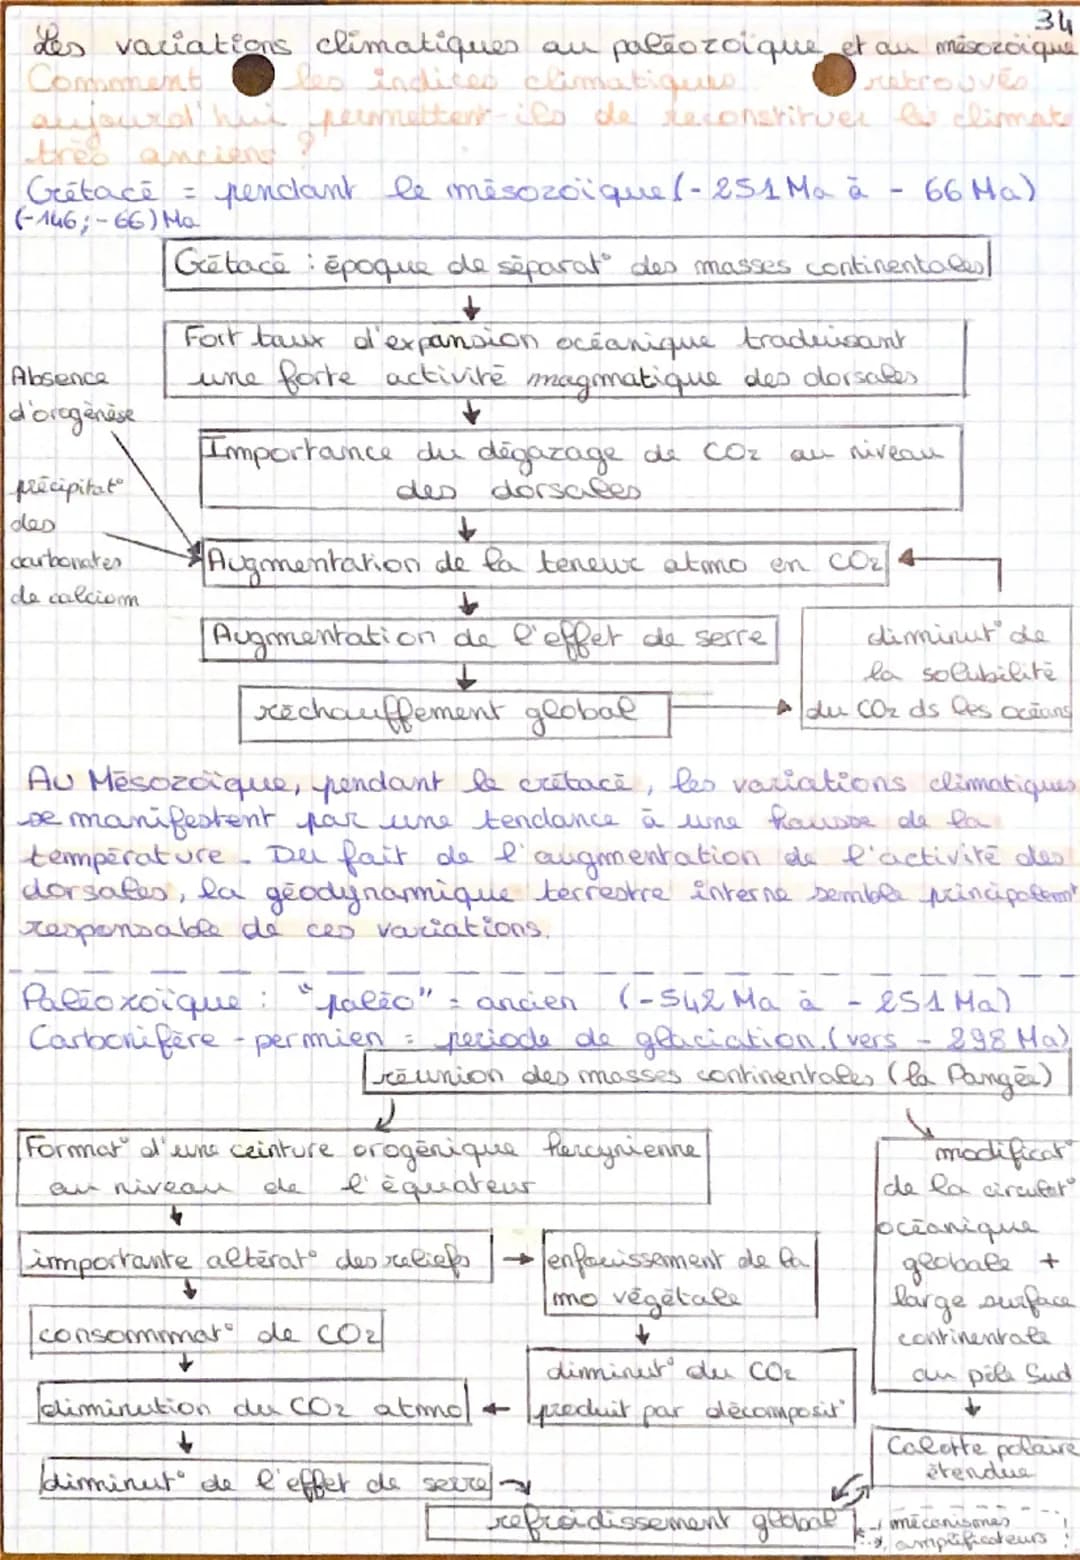 34
Les variations climatiques au paléozoïque et au mésozoïque
Comment les indices climatiques retrouvés
aujourd'hui permettent-ils de reconstituer les climats
très anciens ?
Crétacé = pendant le mésozoïque (- 251 Ma à - 66 Ma)
(-146 ; -66) Ma
Crétacé : époque de séparat° des masses continentales
Fort taux d'expansion océanique traduisant
une forte activité magmatique des dorsales
Absence
d'orogénèse
Importance du dégazage de CO2 au niveau
des dorsales
précipitat°
des
carbonates
de calcium
Augmentation de la teneur atmo en CO2
Augmentation de l'effet de serre
diminut° de
la solubilité
du CO2 ds les océans
réchauffement global
Au Mésozoïque, pendant le crétacé, les variations climatiques
se manifestent par une tendance à une hausse de la
température. Du fait de l'augmentation de l'activité des
dorsales, la géodynamique terrestre interne semble principalemt
responsable de ces variations.
Paléozoïque : "paléo" = ancien (-542 Ma à - 251 Ma)
Carbonifère - permien = période de glaciation. (vers - 298 Ma)
réunion des masses continentales (la Pangée)
Format° d'une ceinture orogénique hercynienne
au niveau de l'équateur
modificat°
de la circulat°
océanique
globale +
large surface
continentale
au pôle Sud
importante altérat° des reliefs
enfouissement de la
mo végétale
consommat° de CO2
diminut° du CO2
produit par décomposit°
diminution du CO2 atmo
Calotte polaire
étendue
diminut° de l'effet de serre
refroidissement global
mécanismes
amplificateurs